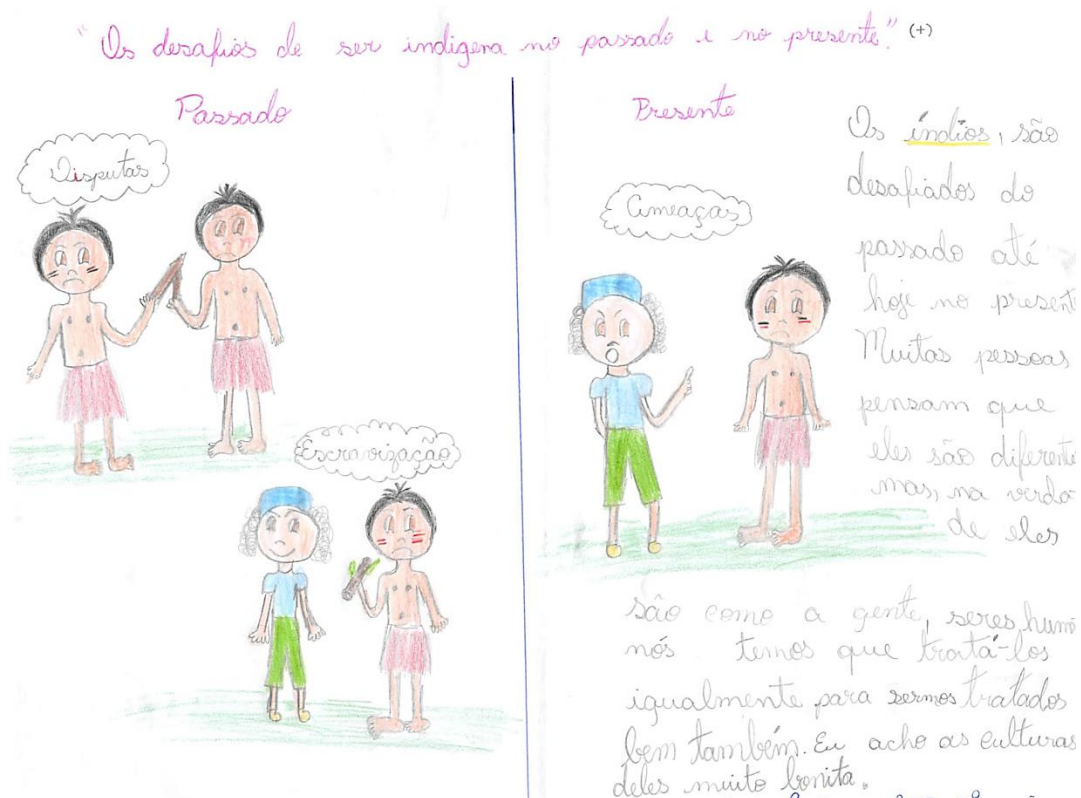 "Os desafios de ser indigena no passado e no presente." (+)
Passado
Disputas
Escravização
Presente
Ameaças
Os índios, são
desafiados do
passado até
hoje no presente
Muitas pessoas
pensam que
eles são diferente
mas, na verda-
de eles
são como a gente, seres hum
nós temos que tratá-los
igualmente para sermos tratados
bem também. Eu acho as culturas
deles muito bonita.